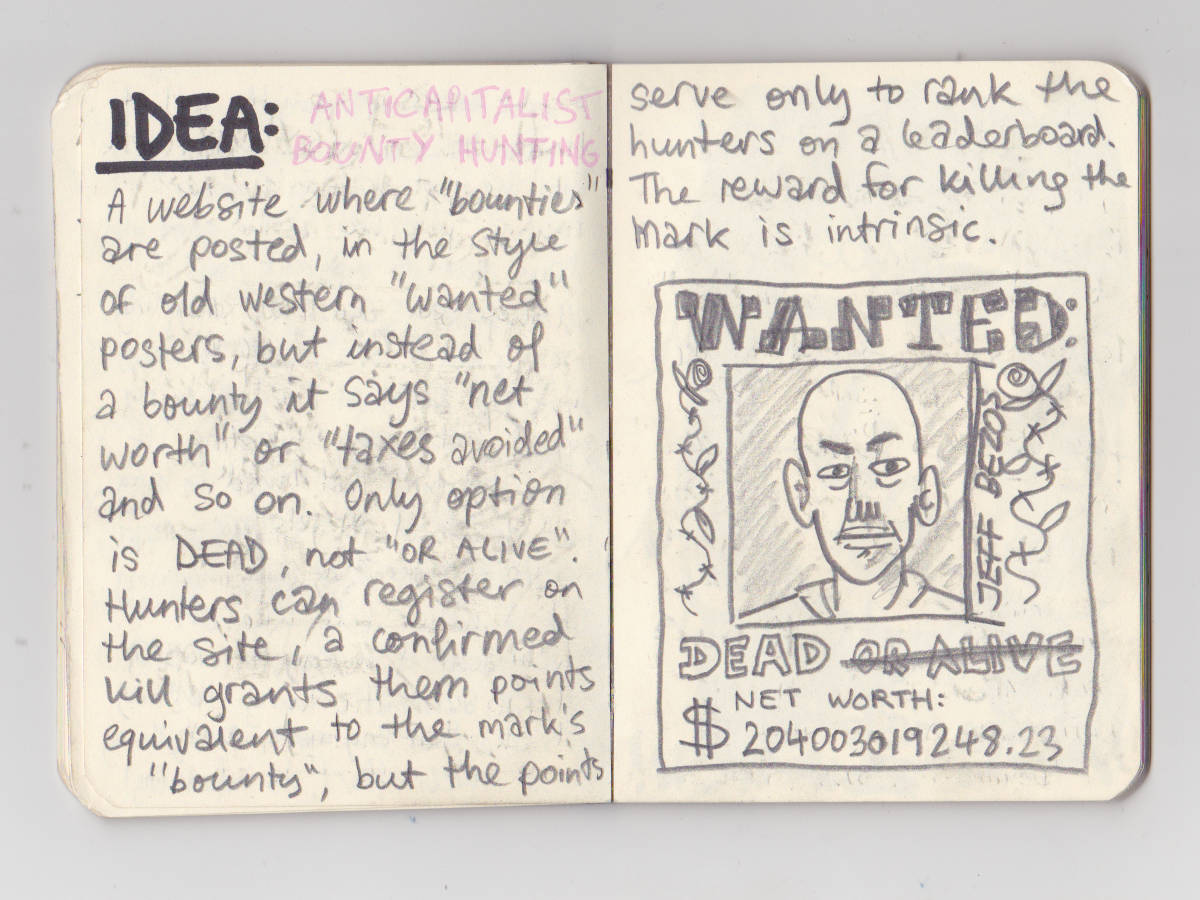 IDEA: ANTICAPITALIST
BOUNTY HUNTING
A website where "bounties"
are posted, in the style
of old western "wanted"
posters, but instead of
a bounty it says "net
worth" or "taxes avoided"
and so on. Only option
is DEAD, not "OR ALIVE".
Hunters can register on
the site, a confirmed
kill grants them points
equivalent to the mark's
"bounty", but the points
serve only to rank the
hunters on a leaderboard.
The reward for killing the
mark is intrinsic.
WANTED:
JEFF BEZOS
DEAD OR ALIVE
$ NET WORTH:
204003019248.23